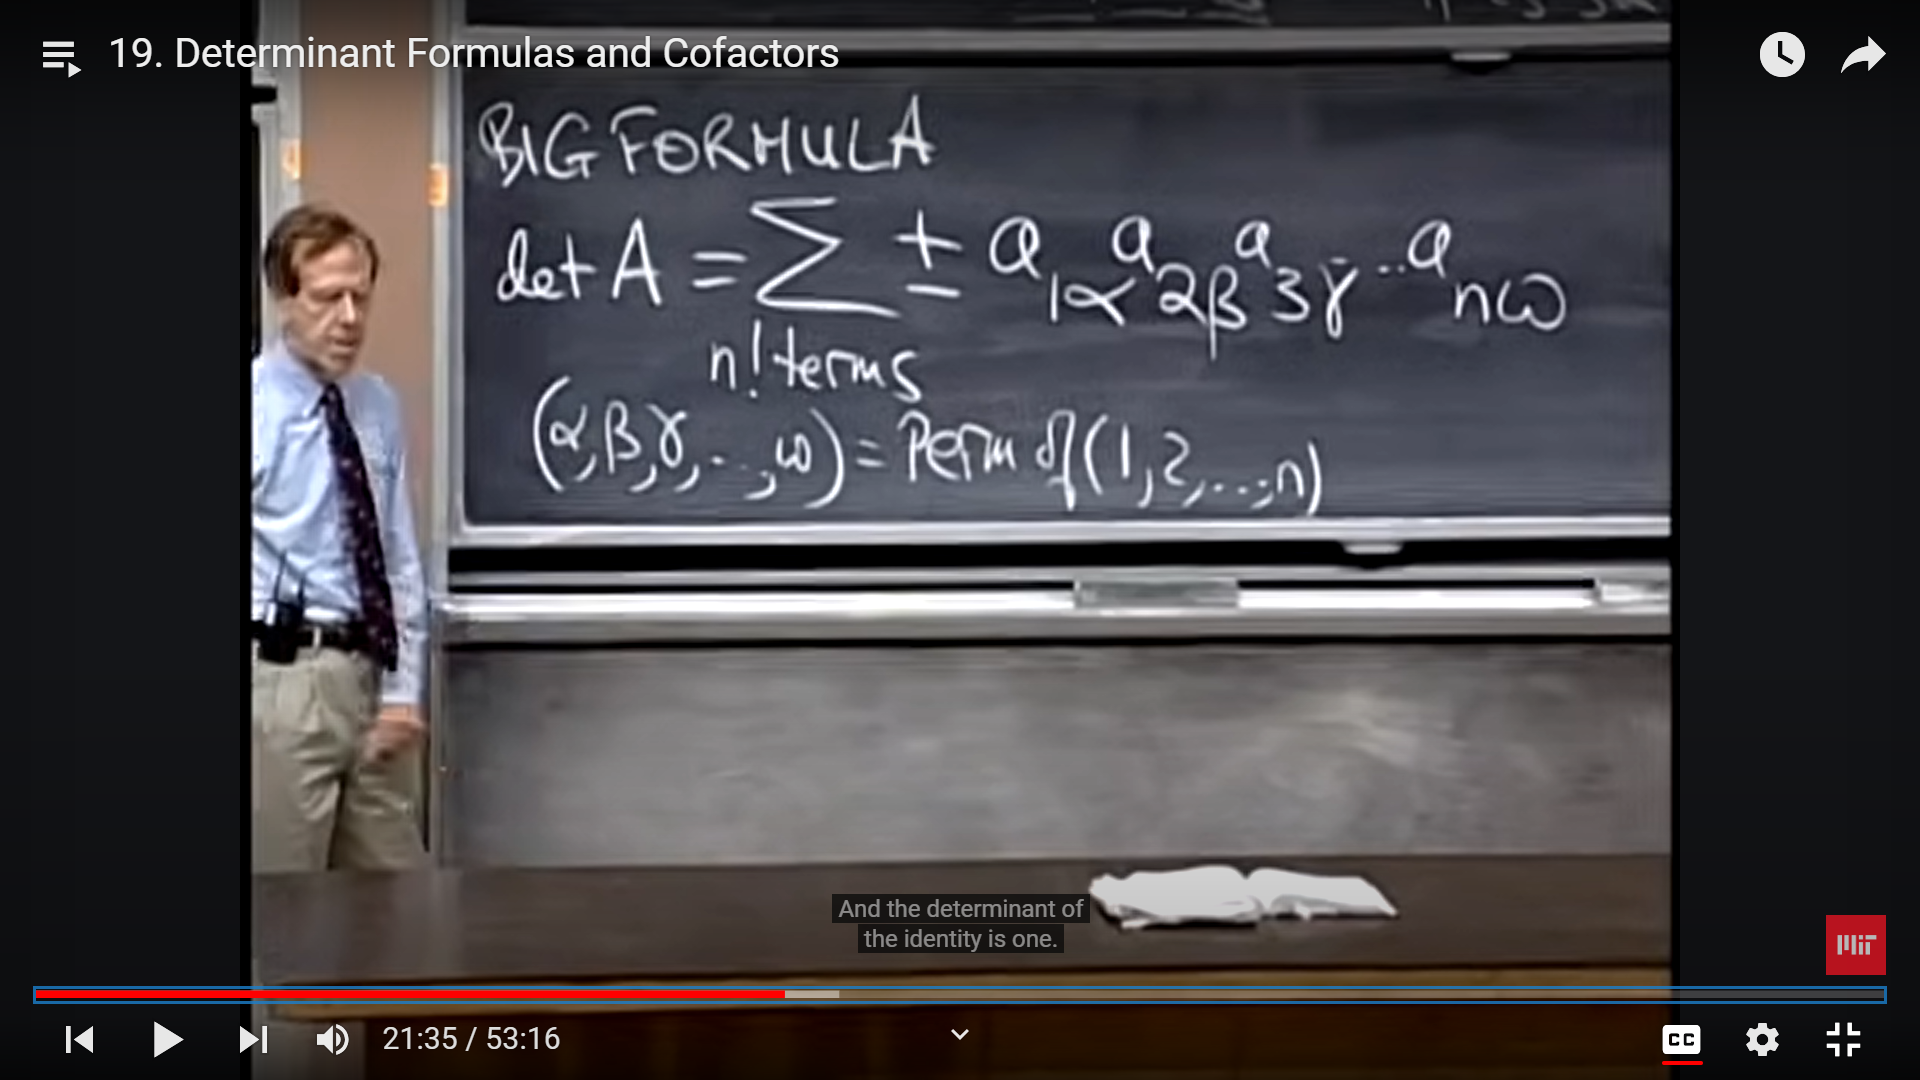 19. Determinant Formulas and Cofactors
BIG FORMULA
det A = ∑ ± a1α a2β a3γ ... anω
n! terms
(α, β, γ, ..., ω) = Perm of (1, 2, ..., n)
And the determinant of
the identity is one.
MIT
21:35 / 53:16
CC